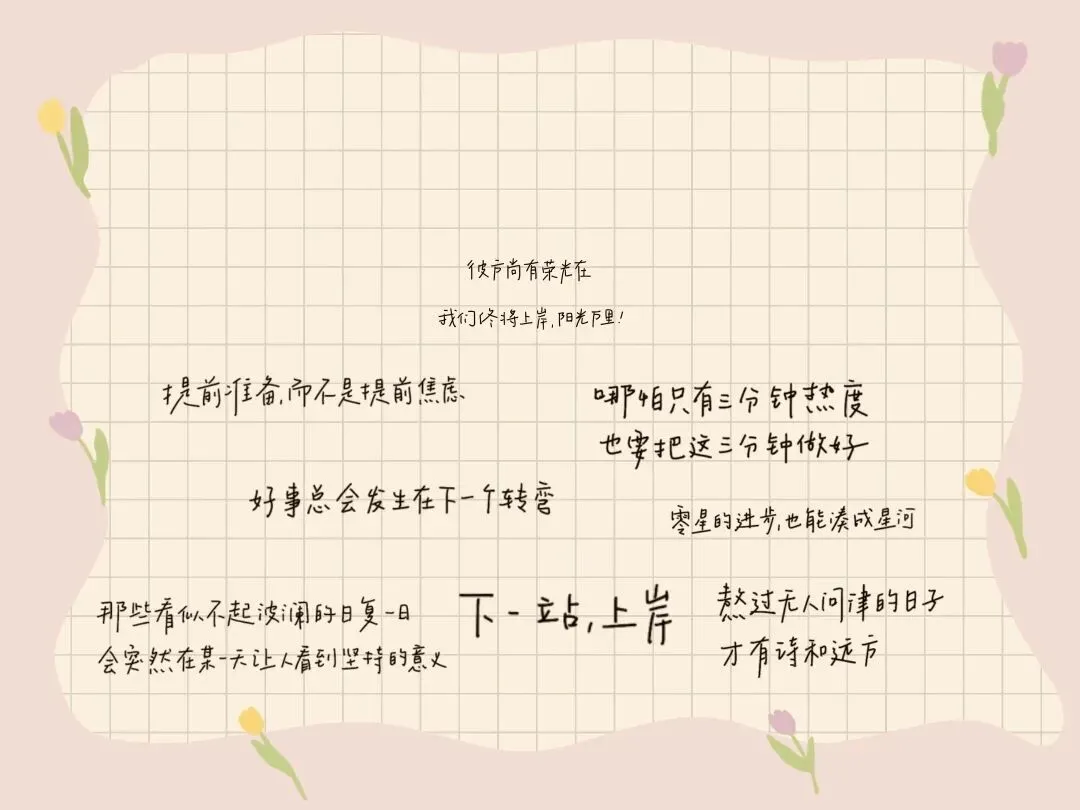 彼方尚有荣光在
我们终将上岸,阳光万里!
提前准备,而不是提前焦虑
哪怕只有三分钟热度
也要把这三分钟做好
好事总会发生在下一个转弯
零星的进步,也能凑成星河
那些看似不起波澜的日复一日
会突然在某一天让人看到坚持的意义
下一站,上岸
熬过无人问津的日子
才有诗和远方